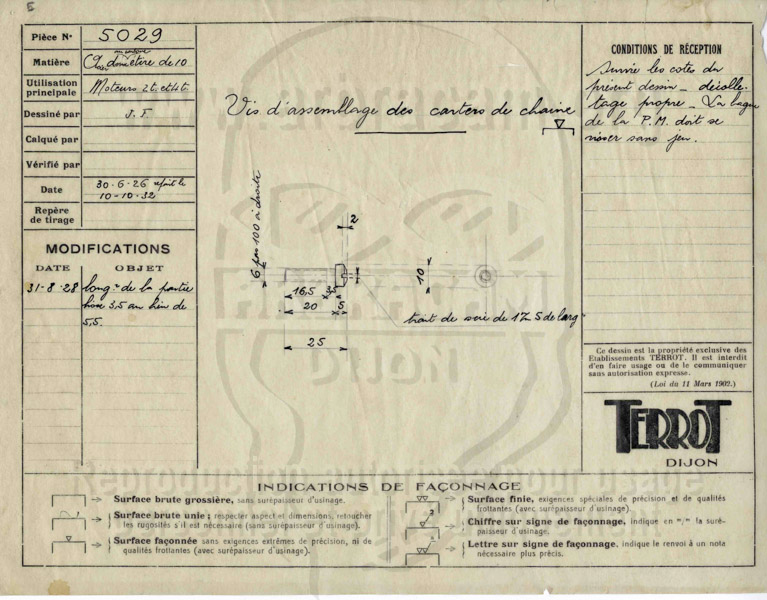 Pièce N° 5029
Matière
Acier domiètire de 10
Utilisation principale
Moteurs 2t. et 4t.
Dessiné par J. F.
Calqué par
Vérifié par
Date 30-6-26 refait le
10-10-32
Repère de tirage
MODIFICATIONS
DATE OBJET
31-8-28 long.r de la partie
lisse 3,5 au lieu de
5,5.
Vis d'assemblage des carters de chaîne
6 pas 100 à droite
2
10
16,5 3,5
20 5
25
trait de scie de 1 5 de larg
CONDITIONS DE RÉCEPTION
Suivre les cotes du
présent dessin _ décolle-
tage propre _ La bague
de la P.M. doit se
visser sans jeu.
Ce dessin est la propriété exclusive des
Etablissements TERROT. Il est interdit
d'en faire usage ou de le communiquer
sans autorisation expresse.
(Loi du 11 Mars 1902.)
TERROT
DIJON
INDICATIONS DE FAÇONNAGE
Surface brute grossière, sans surépaisseur d'usinage.
Surface brute unie ; respecter aspect et dimensions, retoucher
les rugosités s'il est nécessaire (sans surépaisseur d'usinage).
Surface façonnée sans exigences extrêmes de précision, ni de
qualités frottantes (avec surépaisseur d'usinage).
Surface finie, exigences spéciales de précision et de qualités
frottantes (avec surépaisseur d'usinage).
Chiffre sur signe de façonnage, indique en m/m la suré-
paisseur d'usinage.
Lettre sur signe de façonnage, indique le renvoi à un nota
nécessaire plus précis.